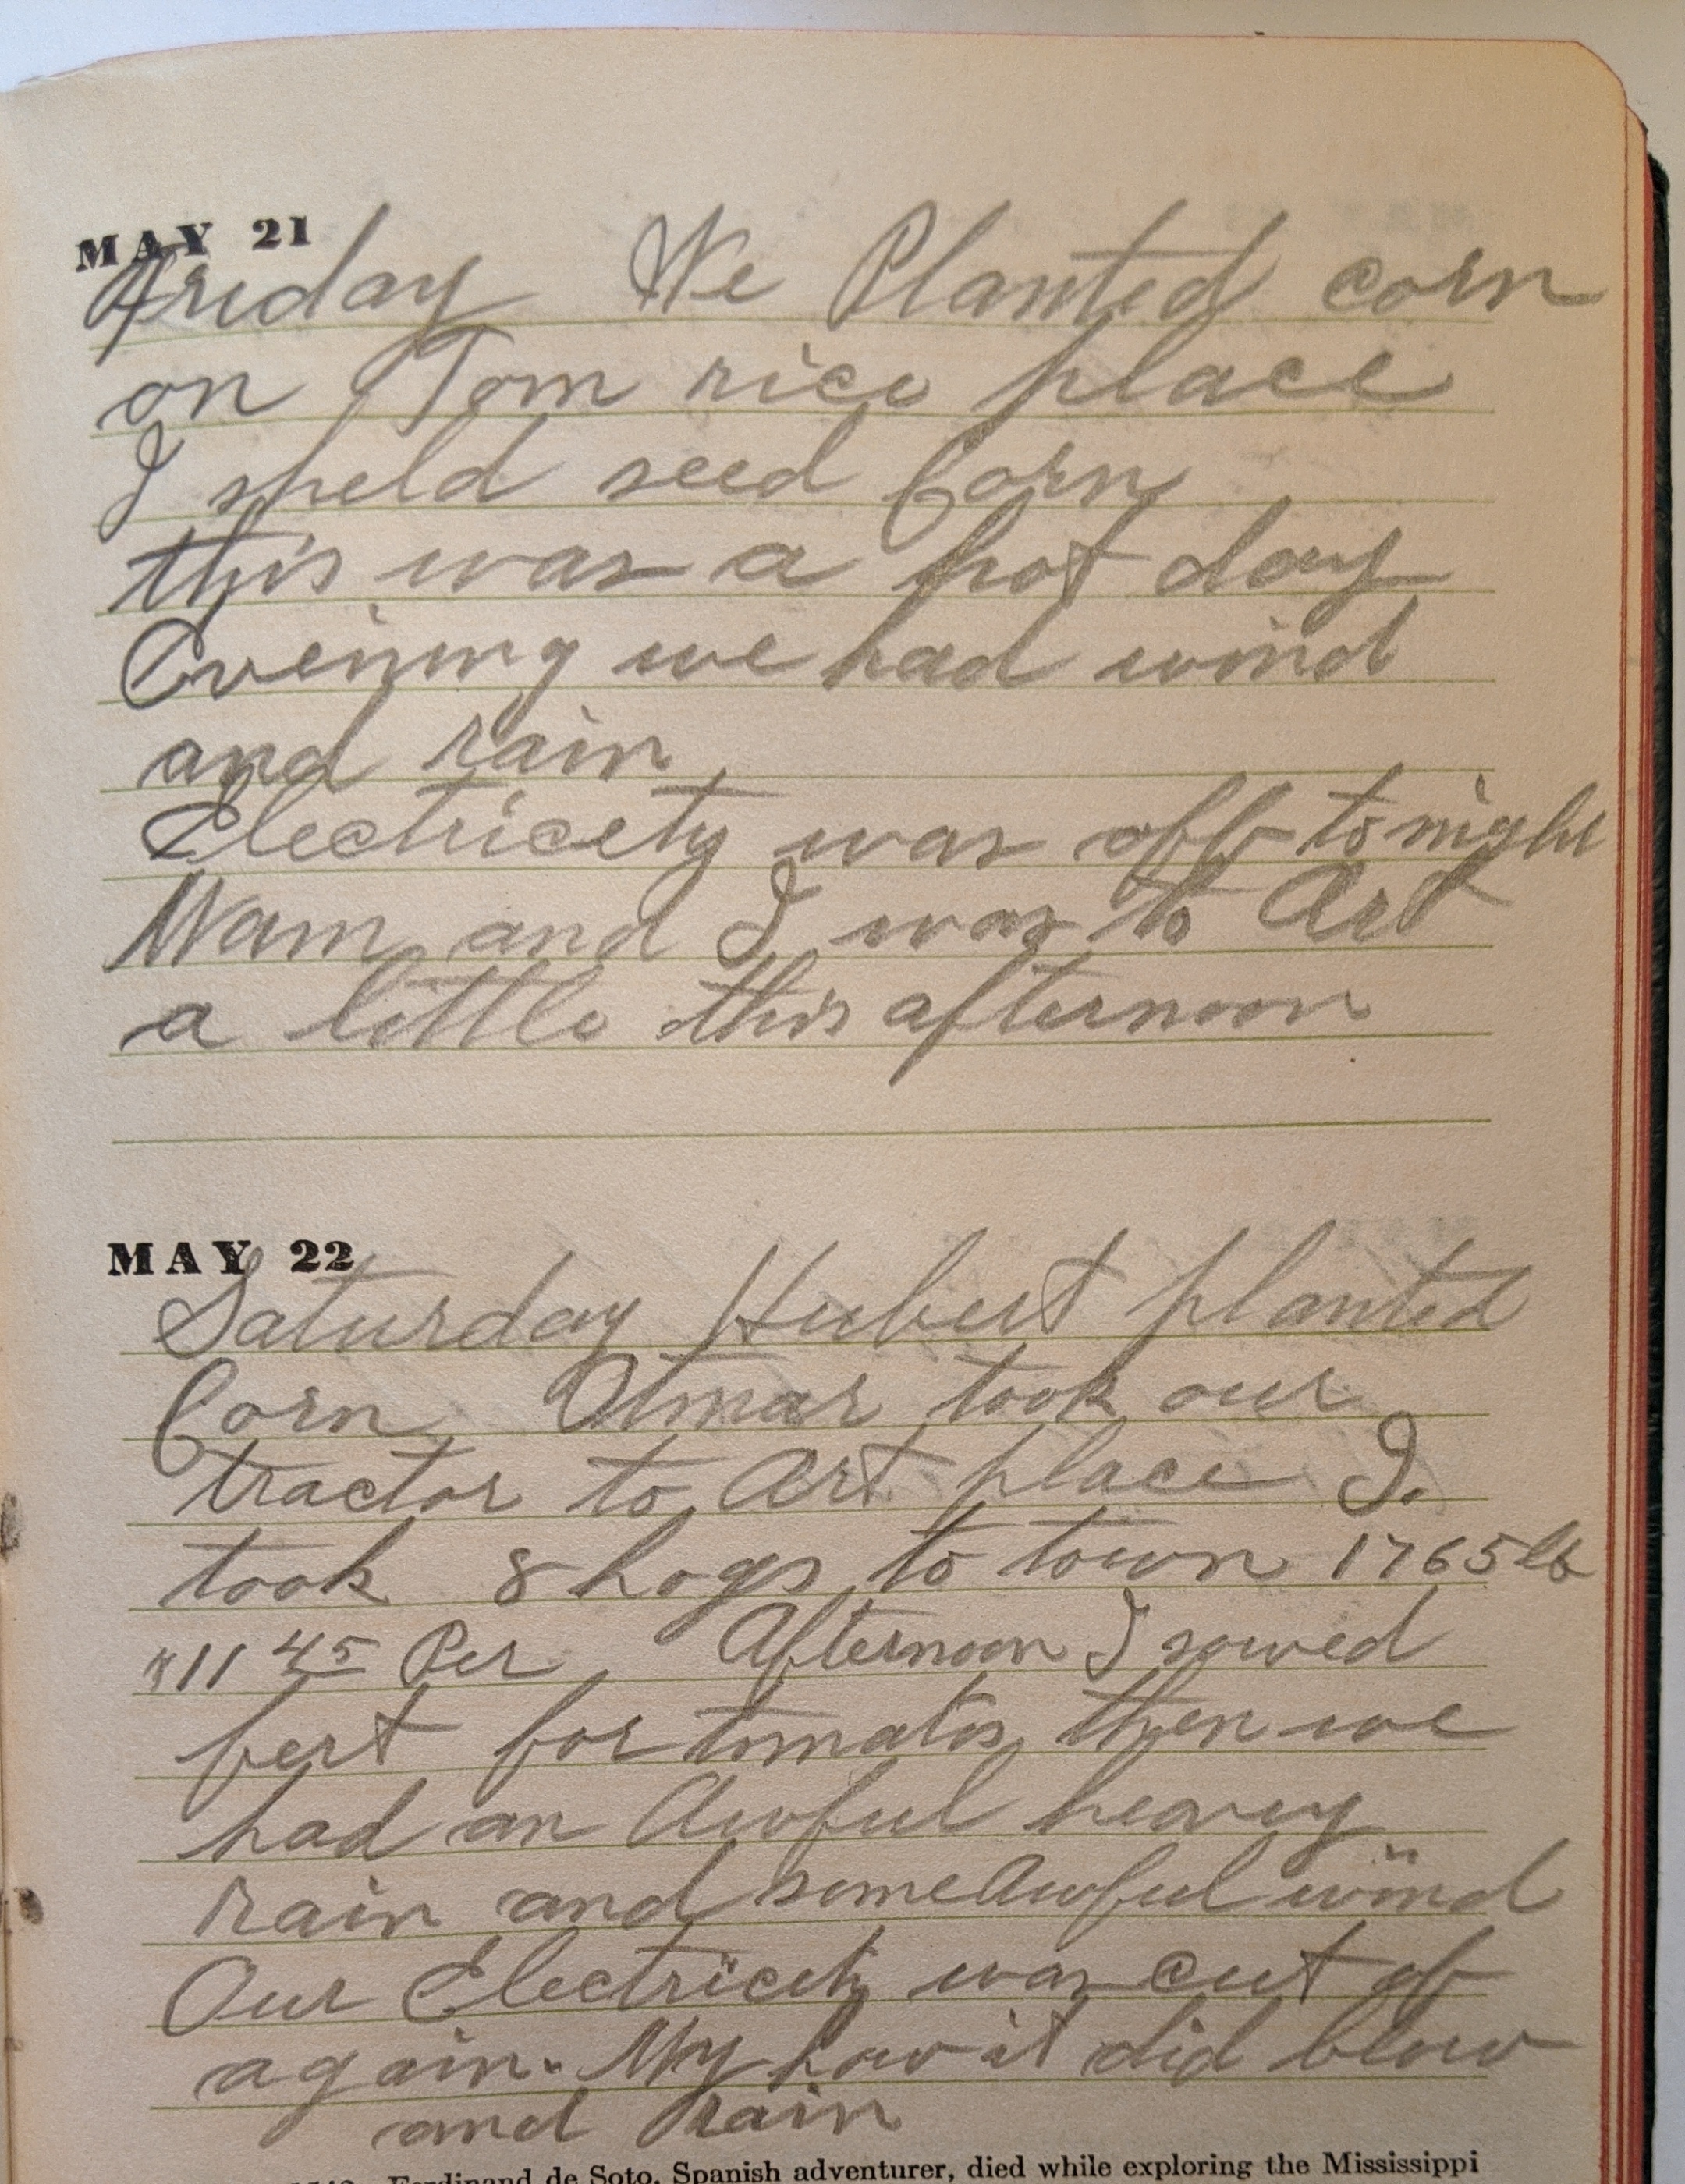 MAY 21
Friday We Planted corn
on Tom rice place
I sheld seed Corn
this was a hot day
Evening we had wind
and rain
Electricety was off to night
Mam and I was to Art
a little this afternoon
MAY 22
Saturday Hubert planted
Corn Otmar took our
tractor to Art place I.
took 8 hogs to town 1765 lb
$11 45 Per Afternoon I sowed
fert for tomatos then we
had an Awful heavy
rain and some Awful wind
Our Electricity was cut of
again. My how it did blow
and Rain
Ferdinand de Soto, Spanish adventurer, died while exploring the Mississippi